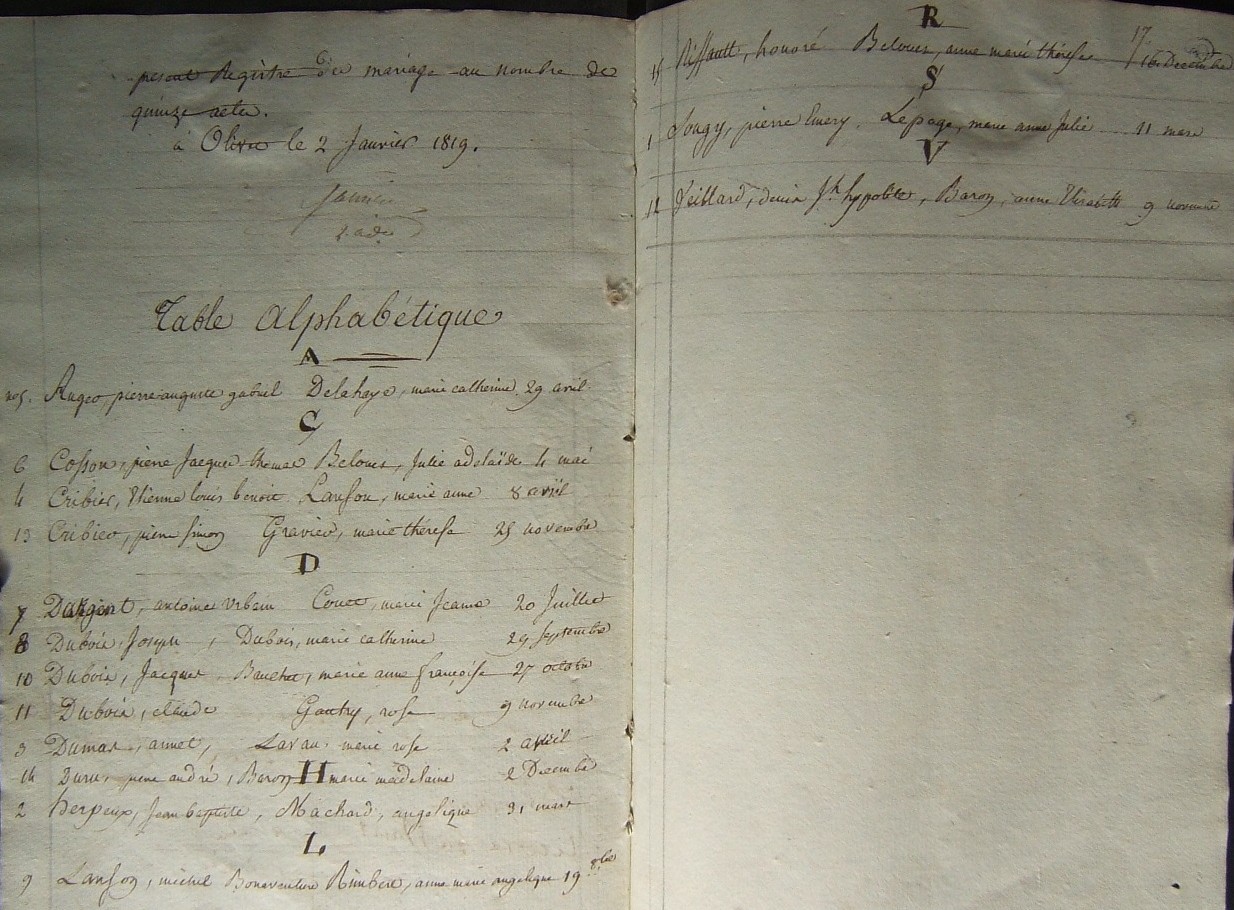 présent Registre de mariage au nombre de
quinze actes.
à Olivet le 2 Janvier 1819.
Table Alphabétique
A
no 5. Augeo pierre auguste gabriel Delahaye, marie catherine 29 avril
C
6 Cosson, pierre Jacques thomas Belouis, Julie adelaïde 4 mai
4 Cribier, Etienne louis benoit Lanson, marie anne 8 avril
13 Cribier, pierre simon Gravier, marie thérese 25 novembre
D
7 Dargent, antoine Urbain Couet, marie Jeanne 20 Juillet
8 Dubois, Joseph, Dubois, marie catherine 29 septembre
10 Dubois, Jacques marie anne françoise 27 octobre
11 Dubois, claude Gautry, rose 9 novembre
3 Dumas, annet, Lavau, marie rose 2 avril
14 Duru, pierre andré, Baron marie madelaine 2 Decembre
H
2 herpeux, Jean baptiste, Machard, angelique 31 mars
L
9 Lanson, michel Bonaventure Rimbert, anne marie angelique 19 8bre
R
15 Riffault, honoré Belouis, anne marie thérese 17 16 Decembre
S
1 Sougy, pierre Emery. Lepage, marie anne Julie 11 mars
V
12 Veillard, denis Jh hypolite, Baron, anne Elisabeth 9 novembre